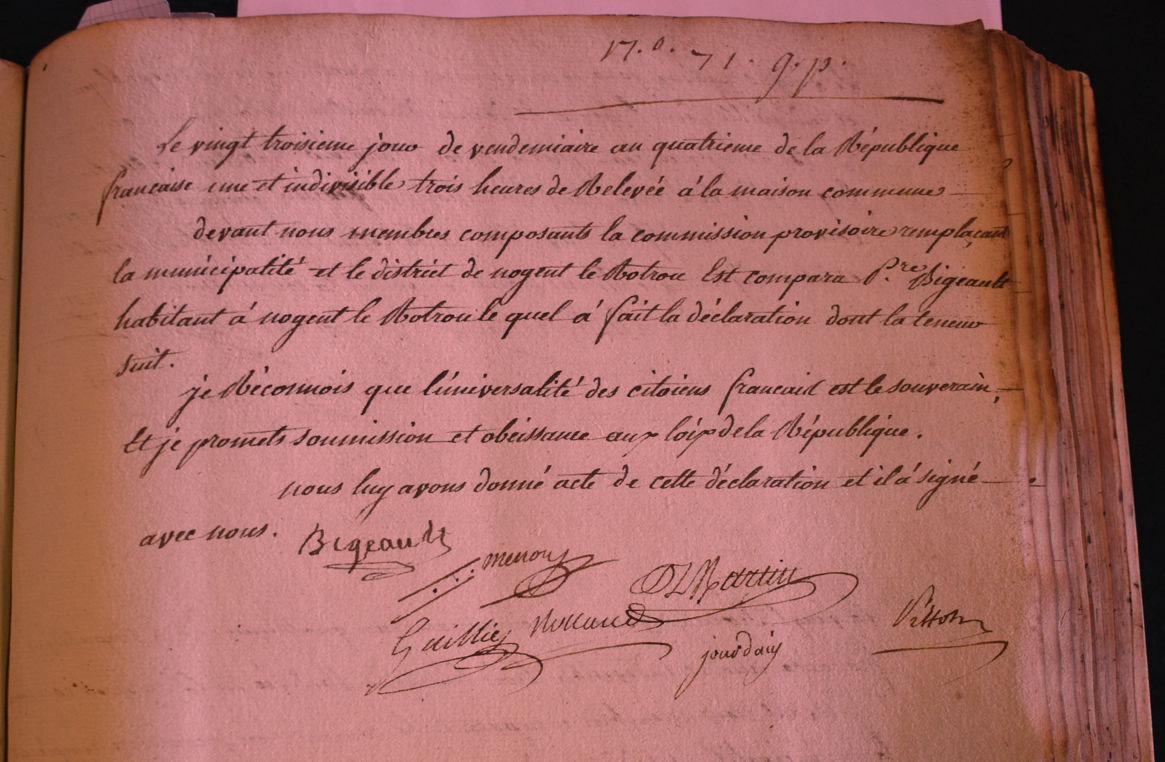 17.e. 71. 9.p.
Le vingt troisieme jour de vendemiaire au quatrieme de la République
francaise une et indivisible trois heures de Relevée á la maison commune
devant nous membres composants la commission provisoire remplaçant
la municipalité et le district de nogent le Rotrou Est comparu P.re Bigeault
habitant á nogent le Rotrou le quel á fait la déclaration dont la teneur
suit.
je Réconnois que l'universalité des citoiens francais est le souverain,
Et je promets soumission et obéissance aux loix de la République.
nous luy avons donné acte de cette déclaration et il á signé
avec nous. Bigeault
DL Martin
jourdain